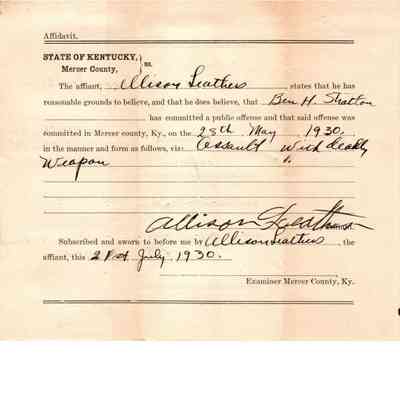 Affidavit.
STATE OF KENTUCKY, } ss.
Mercer County,
The affiant, Allison Leathers, states that he has
reasonable grounds to believe, and that he does believe, that Ben H. Stratton
has committed a public offense and that said offense was
committed in Mercer county, Ky., on the 28th May 1930.
in the manner and form as follows, viz: Assault with deadly
Weapon
Allison Leathers
Subscribed and sworn to before me by Allison Leathers, the
affiant, this 21st July, 1930.
Examiner Mercer County, Ky.